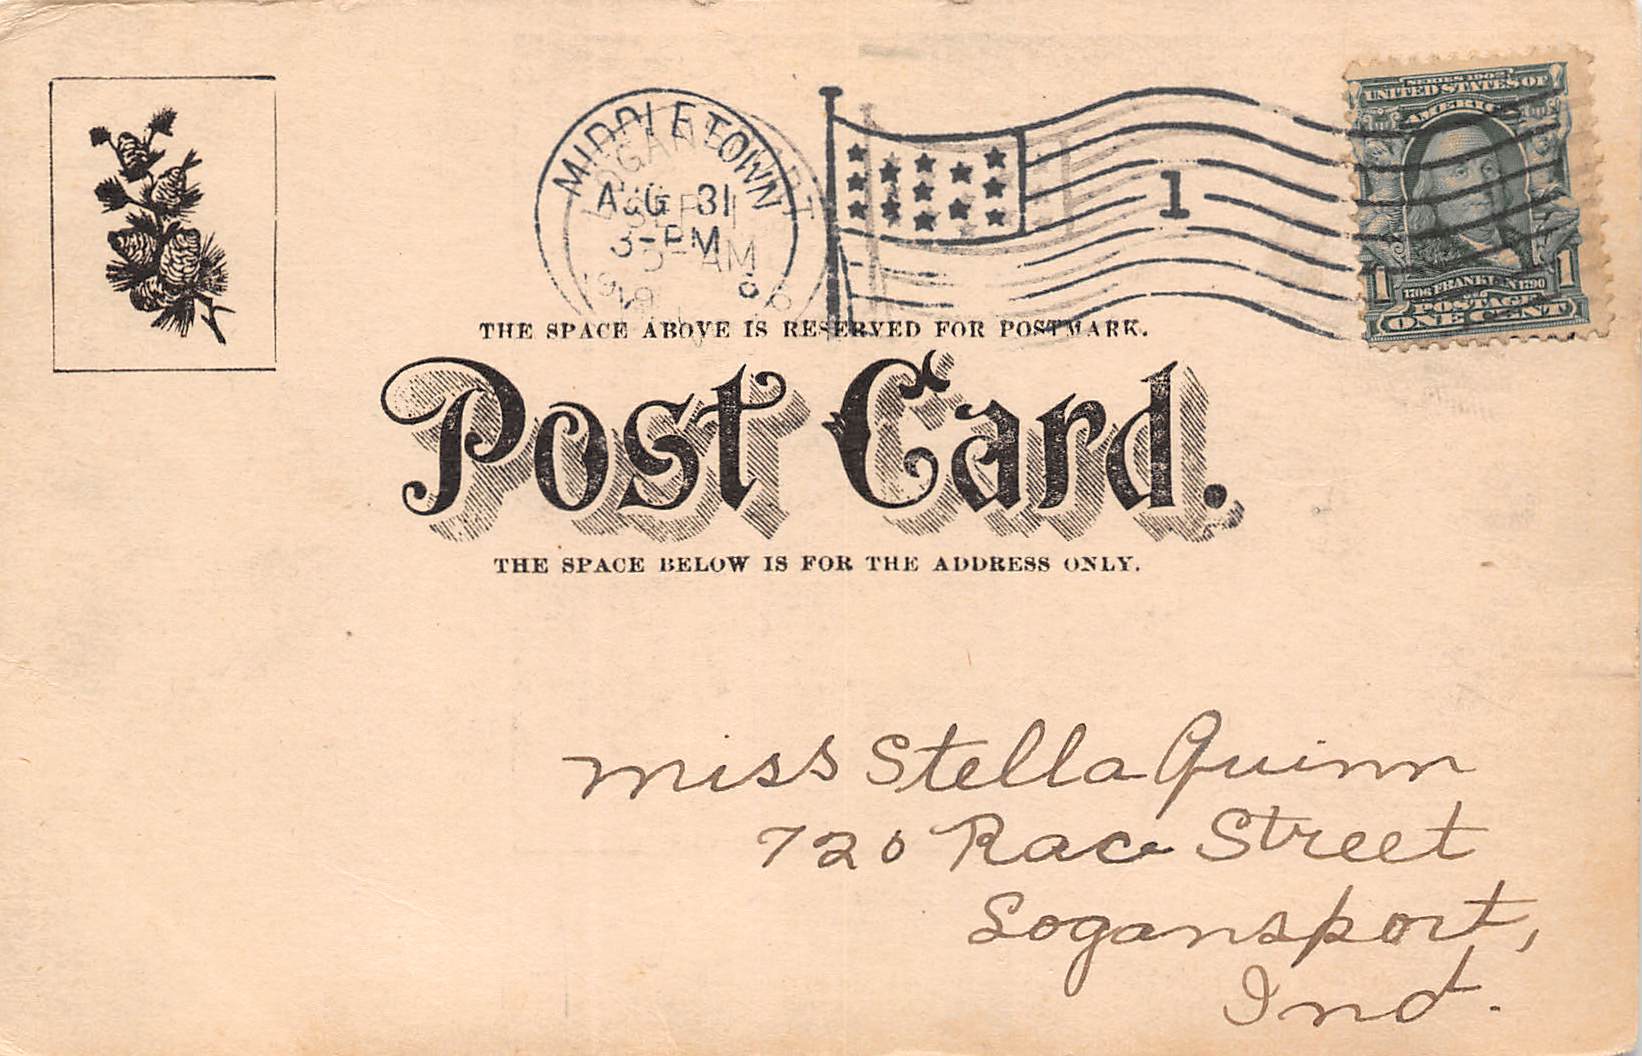 MIDDLETOWN
AUG 31
3-PM
LOGANSPORT
SEP 1
AM
1
SERIES 1902
UNITED STATES OF
AMERICA
1706 FRANKLIN 1790
1 1
POSTAGE
ONE CENT
THE SPACE ABOVE IS RESERVED FOR POSTMARK.
Post Card.
THE SPACE BELOW IS FOR THE ADDRESS ONLY.
Miss Stella Quinn
720 Race Street
Logansport,
Ind.